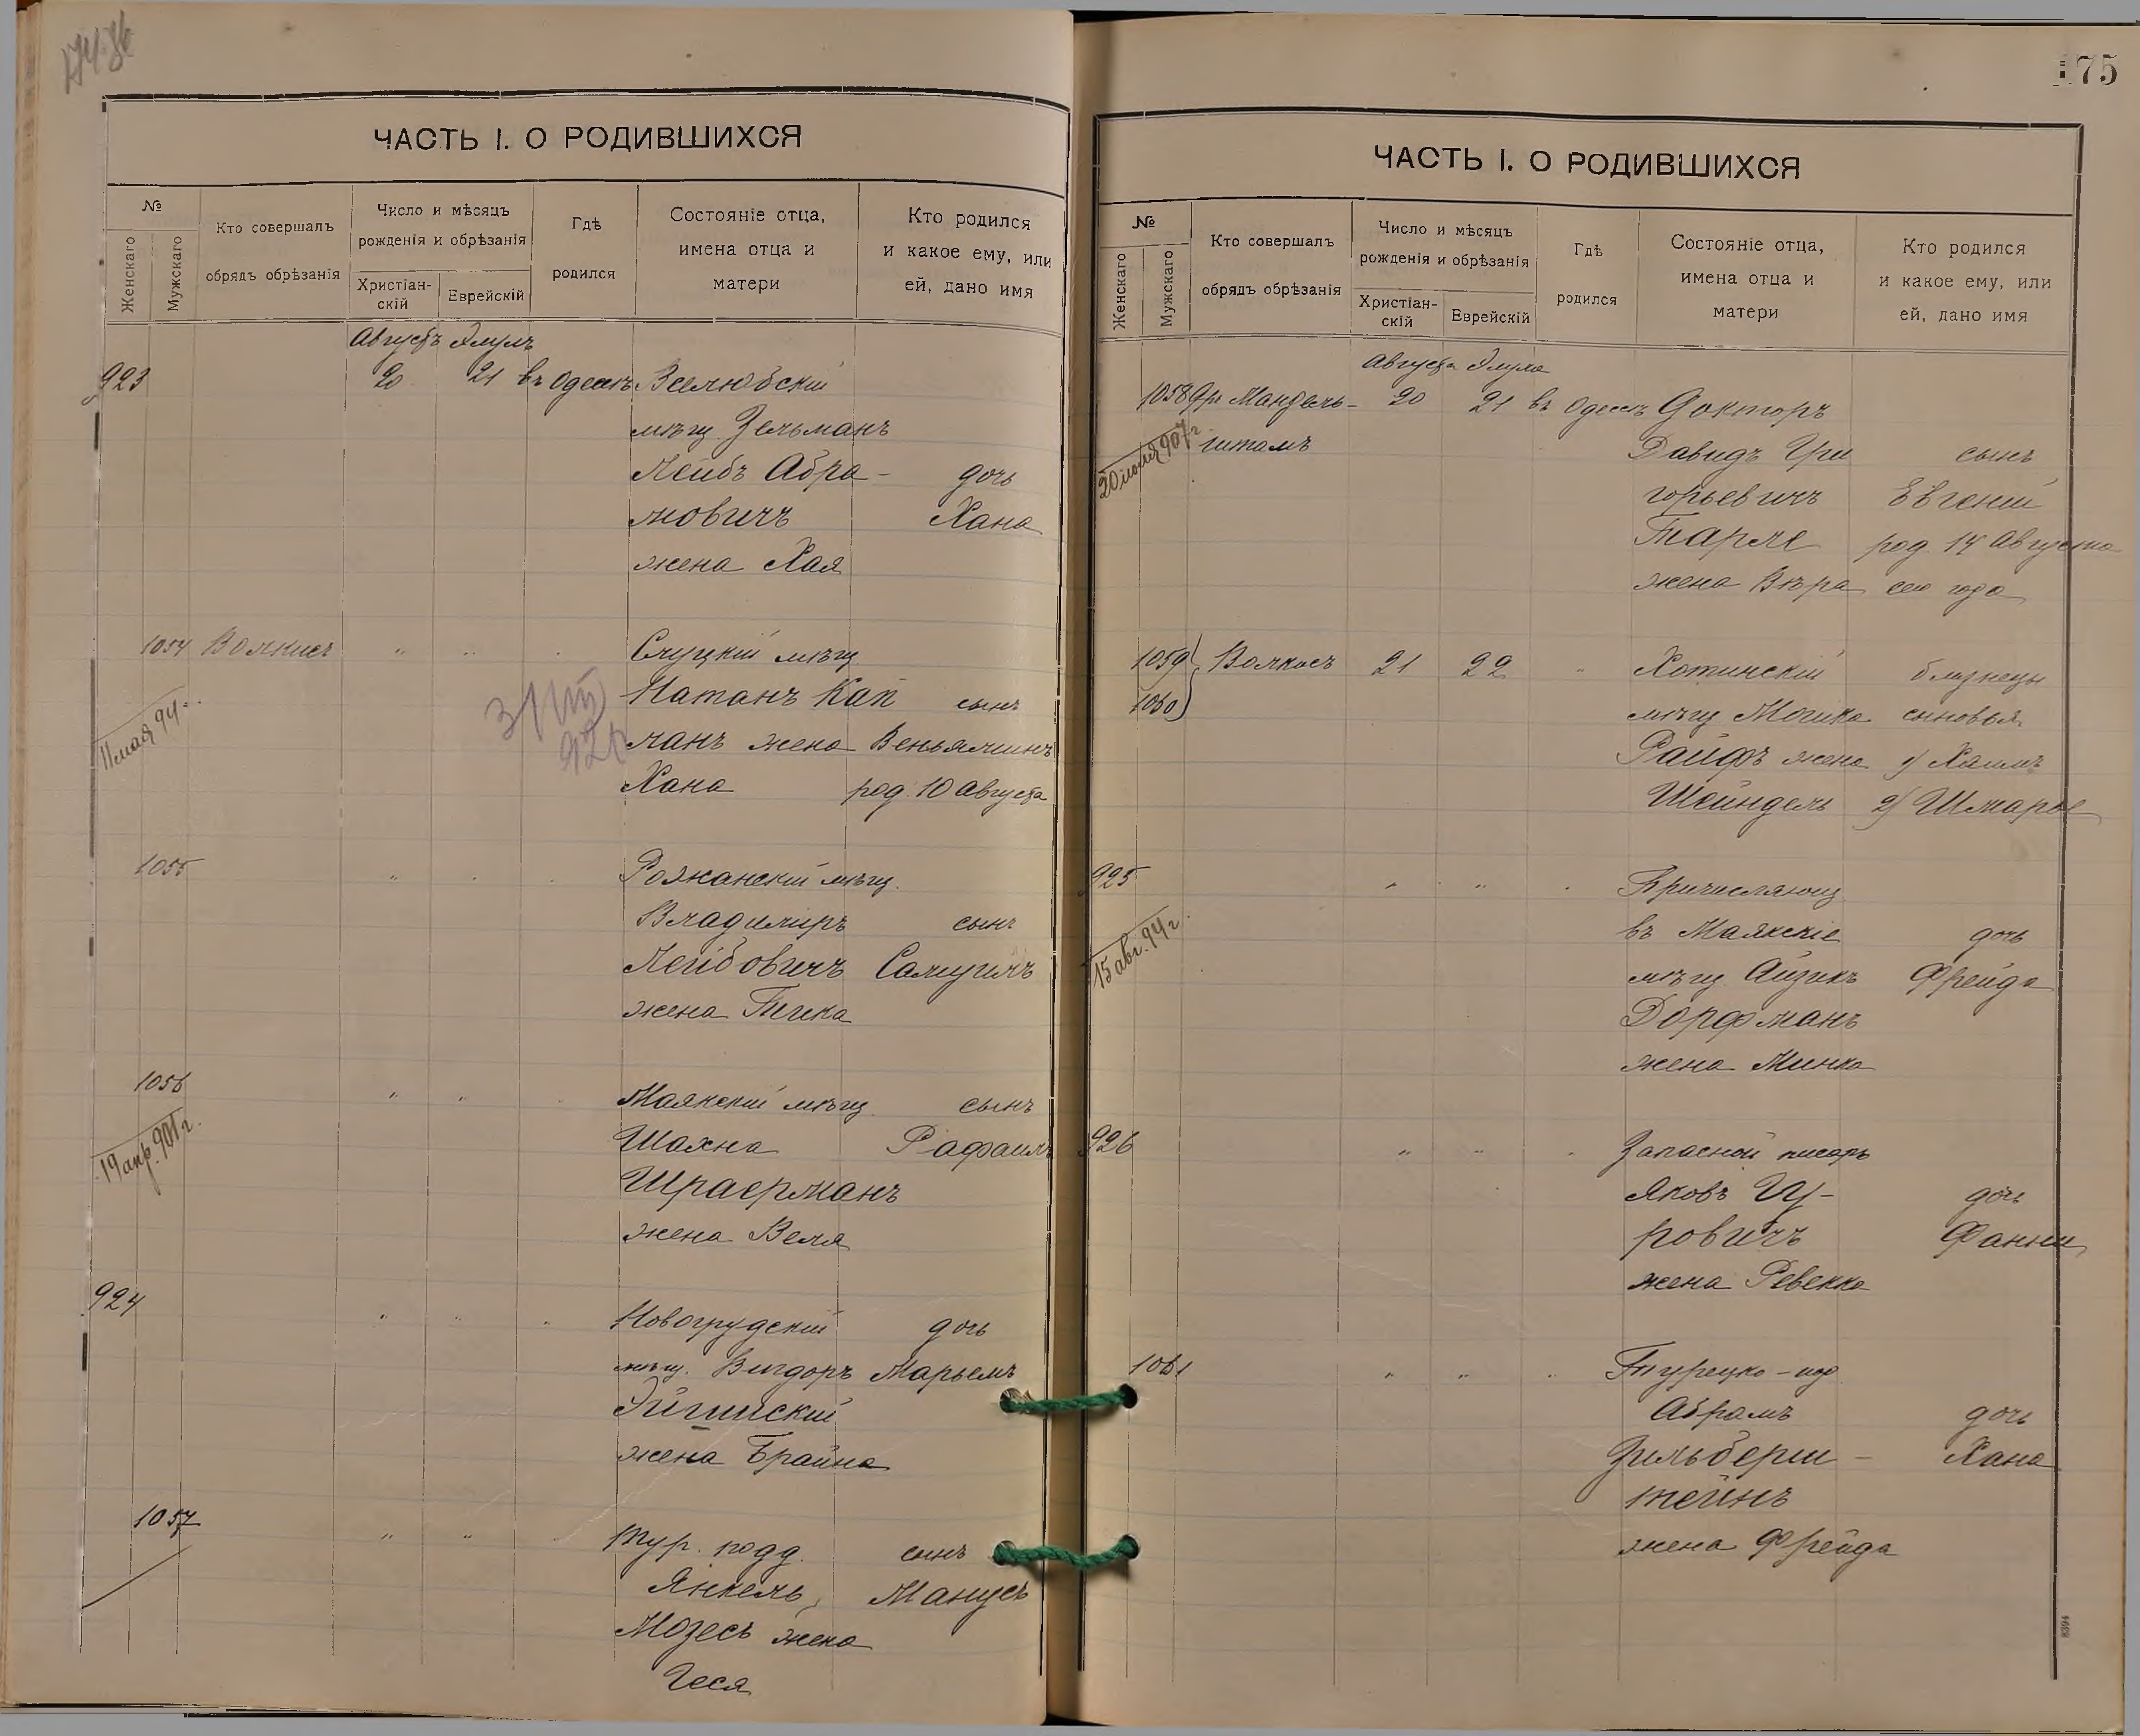 175
ЧАСТЬ I. О РОДИВШИХСЯ
№
Женскаго
Мужскаго
Кто совершалъ
обрядъ обрѣзанія
Число и мѣсяцъ
рожденія и обрѣзанія
Христіан-
скій
Еврейскій
Гдѣ
родился
Состояніе отца,
имена отца и
матери
Кто родился
и какое ему, или
ей, дано имя
Августъ Элулъ
923 20 21 въ Одессѣ
мѣщ. Зельманъ
Лейбъ Абра- дочь
мовичъ Хана
жена Хая
1054 " " Слуцкій мѣщ
Натанъ Кап сынъ
ланъ жена Веньяминъ
Хана род. 10 Августа
11 мая 94 г.
1055 " Рожанскій мѣщ.
Владимиръ сынъ
Лейбовичъ Самуилъ
жена
1056 " " Маякскій мѣщ. сынъ
Шахна Рафаилъ
Шраерманъ
жена Веля
19 апр. 901 г.
924 " " Новогрудскій дочь
мѣщ. Вигдоръ Марьемъ
жена Брайна
1057 " " Тур. подд. сынъ
Янкель Манусъ
Мозесъ жена
Геся
ЧАСТЬ I. О РОДИВШИХСЯ
№
Женскаго
Мужскаго
Кто совершалъ
обрядъ обрѣзанія
Число и мѣсяцъ
рожденія и обрѣзанія
Христіан-
скій
Еврейскій
Гдѣ
родился
Состояніе отца,
имена отца и
матери
Кто родился
и какое ему, или
ей, дано имя
Августа Элула
1058 Др Мандель- 20 21 въ Одессѣ Докторъ
Давидъ Гри сынъ
горьевичъ Евгений
Тарле род. 14 Августа
жена Вѣра сего года
20 907 г.
1059 21 22 Хотинскій близнецы
1060 мѣщ Мошко сыновья
Райфъ жена 1) Хаимъ
Шейндель 2) Шмарье
925 " " Причисляющ
въ Маякскіе дочь
мѣщ. Айзикъ Фрейда
Дорфманъ
жена Минка
15 авг. 94 г.
926 " " Запасной писарь
Яковъ Гу- дочь
ровичъ Фанни
жена Ревекка
1061 " " Турецко-под
Абрамъ дочь
Зильберш- Хана
тейнъ
жена Фрейда
8394